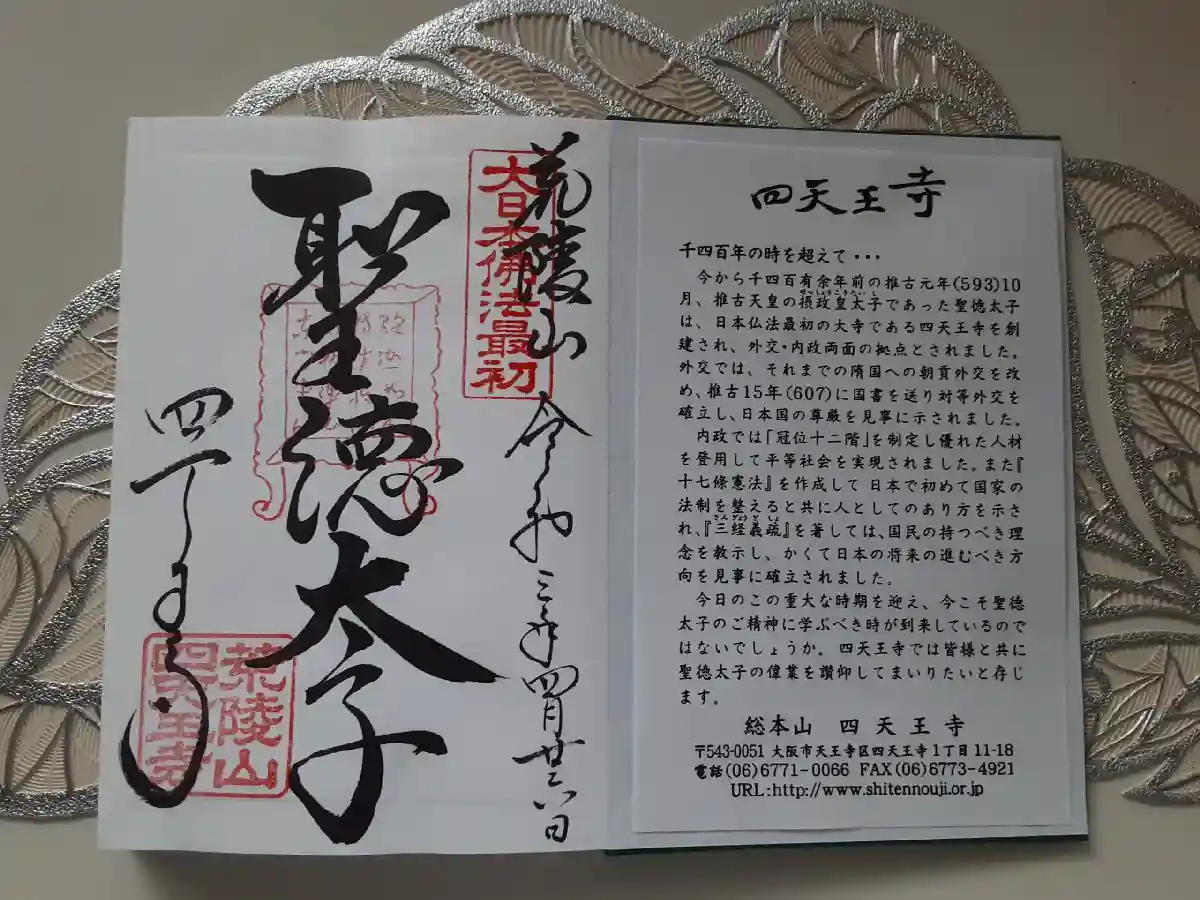 四天王寺
千四百年の時を超えて・・・
今から千四百有余年前の推古元年(593)10
月、推古天皇の摂政皇太子であった聖徳太子
は、日本仏法最初の大寺である四天王寺を創
建され、外交・内政両面の拠点とされました。
外交では、それまでの隋国への朝貢外交を改
め、推古15年(607)に国書を送り対等外交を
確立し、日本国の尊厳を見事に示されました。
内政では「冠位十二階」を制定し優れた人材
を登用して平等社会を実現されました。また『
十七條憲法』を作成して日本で初めて国家の
法制を整えると共に人としてのあり方を示さ
れ、『三経義疏』を著しては、国民の持つべき理
念を教示し、かくて日本の将来の進むべき方
向を見事に確立されました。
今日のこの重大な時期を迎え、今こそ聖徳
太子のご精神に学ぶべき時が到来しているので
はないでしょうか。四天王寺では皆様と共に
聖徳太子の偉業を讃仰してまいりたいと存じ
ます。
総本山 四天王寺
〒543-0051 大阪市天王寺区四天王寺1丁目11-18
電話(06)6771-0066 FAX(06)6773-4921
URL:http://www.shitennouji.or.jp
荒陵山
令和三年四月廿六日
大日本佛法最初
聖徳太子
四天王寺
荒陵山
四天王寺